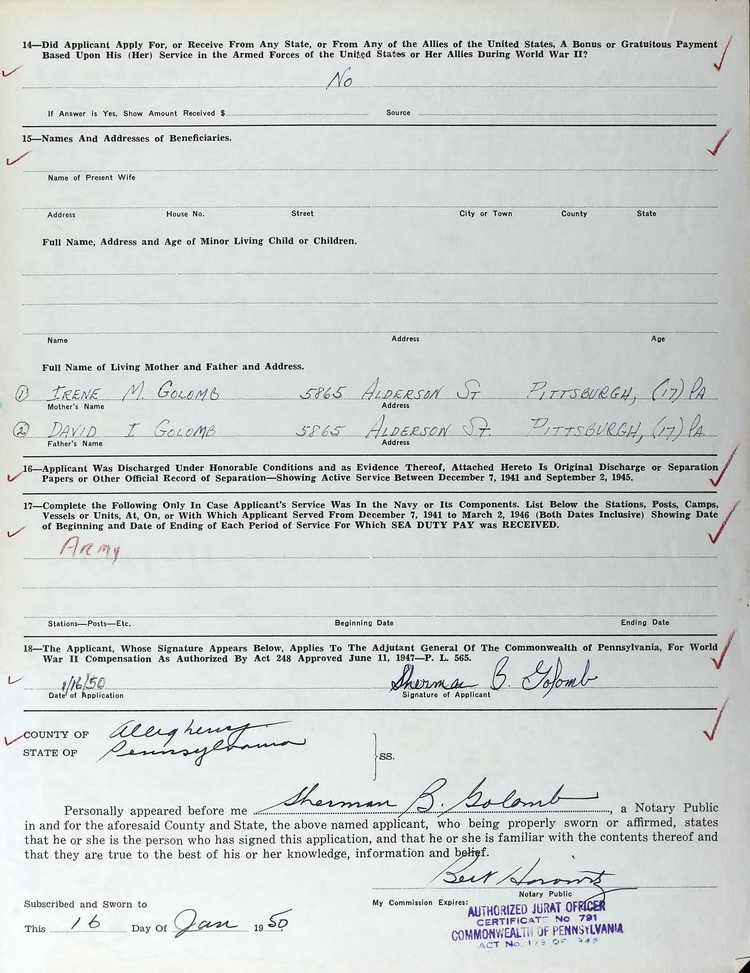 14—Did Applicant Apply For, or Receive From Any State, or From Any of the Allies of the United States, A Bonus or Gratuitous Payment
Based Upon His (Her) Service in the Armed Forces of the United States or Her Allies During World War II?
No
If Answer is Yes, Show Amount Received $ Source
15—Names And Addresses of Beneficiaries.
Name of Present Wife
Address House No. Street City or Town County State
Full Name, Address and Age of Minor Living Child or Children.
Name Address Age
Full Name of Living Mother and Father and Address.
① IRENE M. GOLOMB 5865 ALDERSON ST PITTSBURGH, (17) PA
Mother's Name Address
② DAVID I GOLOMB 5865 ALDERSON ST. PITTSBURGH, (17) PA.
Father's Name Address
16—Applicant Was Discharged Under Honorable Conditions and as Evidence Thereof, Attached Hereto Is Original Discharge or Separation
Papers or Other Official Record of Separation—Showing Active Service Between December 7, 1941 and September 2, 1945.
17—Complete the Following Only In Case Applicant's Service Was In the Navy or Its Components. List Below the Stations, Posts, Camps,
Vessels or Units, At, On, or With Which Applicant Served From December 7, 1941 to March 2, 1946 (Both Dates Inclusive) Showing Date
of Beginning and Date of Ending of Each Period of Service For Which SEA DUTY PAY was RECEIVED.
Army
Stations—Posts—Etc. Beginning Date Ending Date
18—The Applicant, Whose Signature Appears Below, Applies To The Adjutant General Of The Commonwealth of Pennsylvania, For World
War II Compensation As Authorized By Act 248 Approved June 11, 1947—P. L. 565.
1/16/50 Sherman B. Golomb
Date of Application Signature of Applicant
COUNTY OF Allegheny
STATE OF Pennsylvania SS.
Personally appeared before me Sherman B. Golomb, a Notary Public
in and for the aforesaid County and State, the above named applicant, who being properly sworn or affirmed, states
that he or she is the person who has signed this application, and that he or she is familiar with the contents thereof and
that they are true to the best of his or her knowledge, information and belief.
Bert Horowitz
Notary Public
Subscribed and Sworn to My Commission Expires:
This 16 Day Of Jan 1950
AUTHORIZED JURAT OFFICER
CERTIFICATE No 791
COMMONWEALTH OF PENNSYLVANIA
ACT No. OF